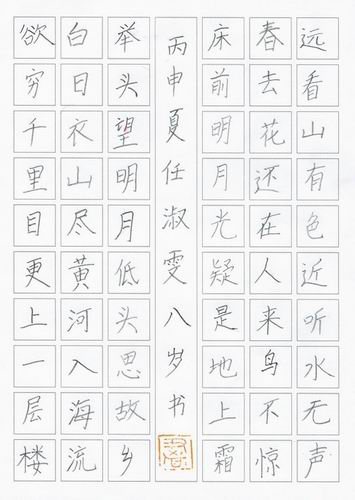 远看山有色近听水无声
春去花还在人来鸟不惊
床前明月光疑是地上霜
丙申夏任淑雯八岁书
举头望明月低头思故乡
白日衣山尽黄河入海流
欲穷千里目更上一层楼